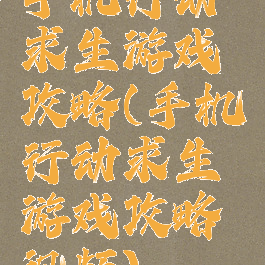 手机行动
求生游戏
攻略(手机
行动求生
游戏攻略
视频)